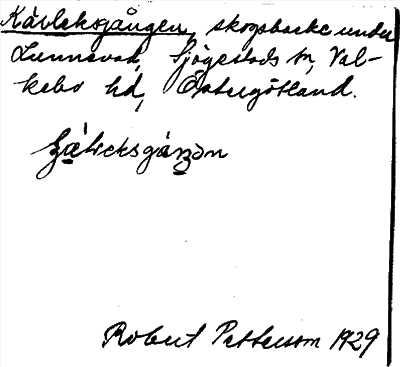 Kärleksgången, skogsbacke under
Lunnevad, Sjögestads sn, Val-
kebo hd, Östergötland.
Robert Pettersson 1929